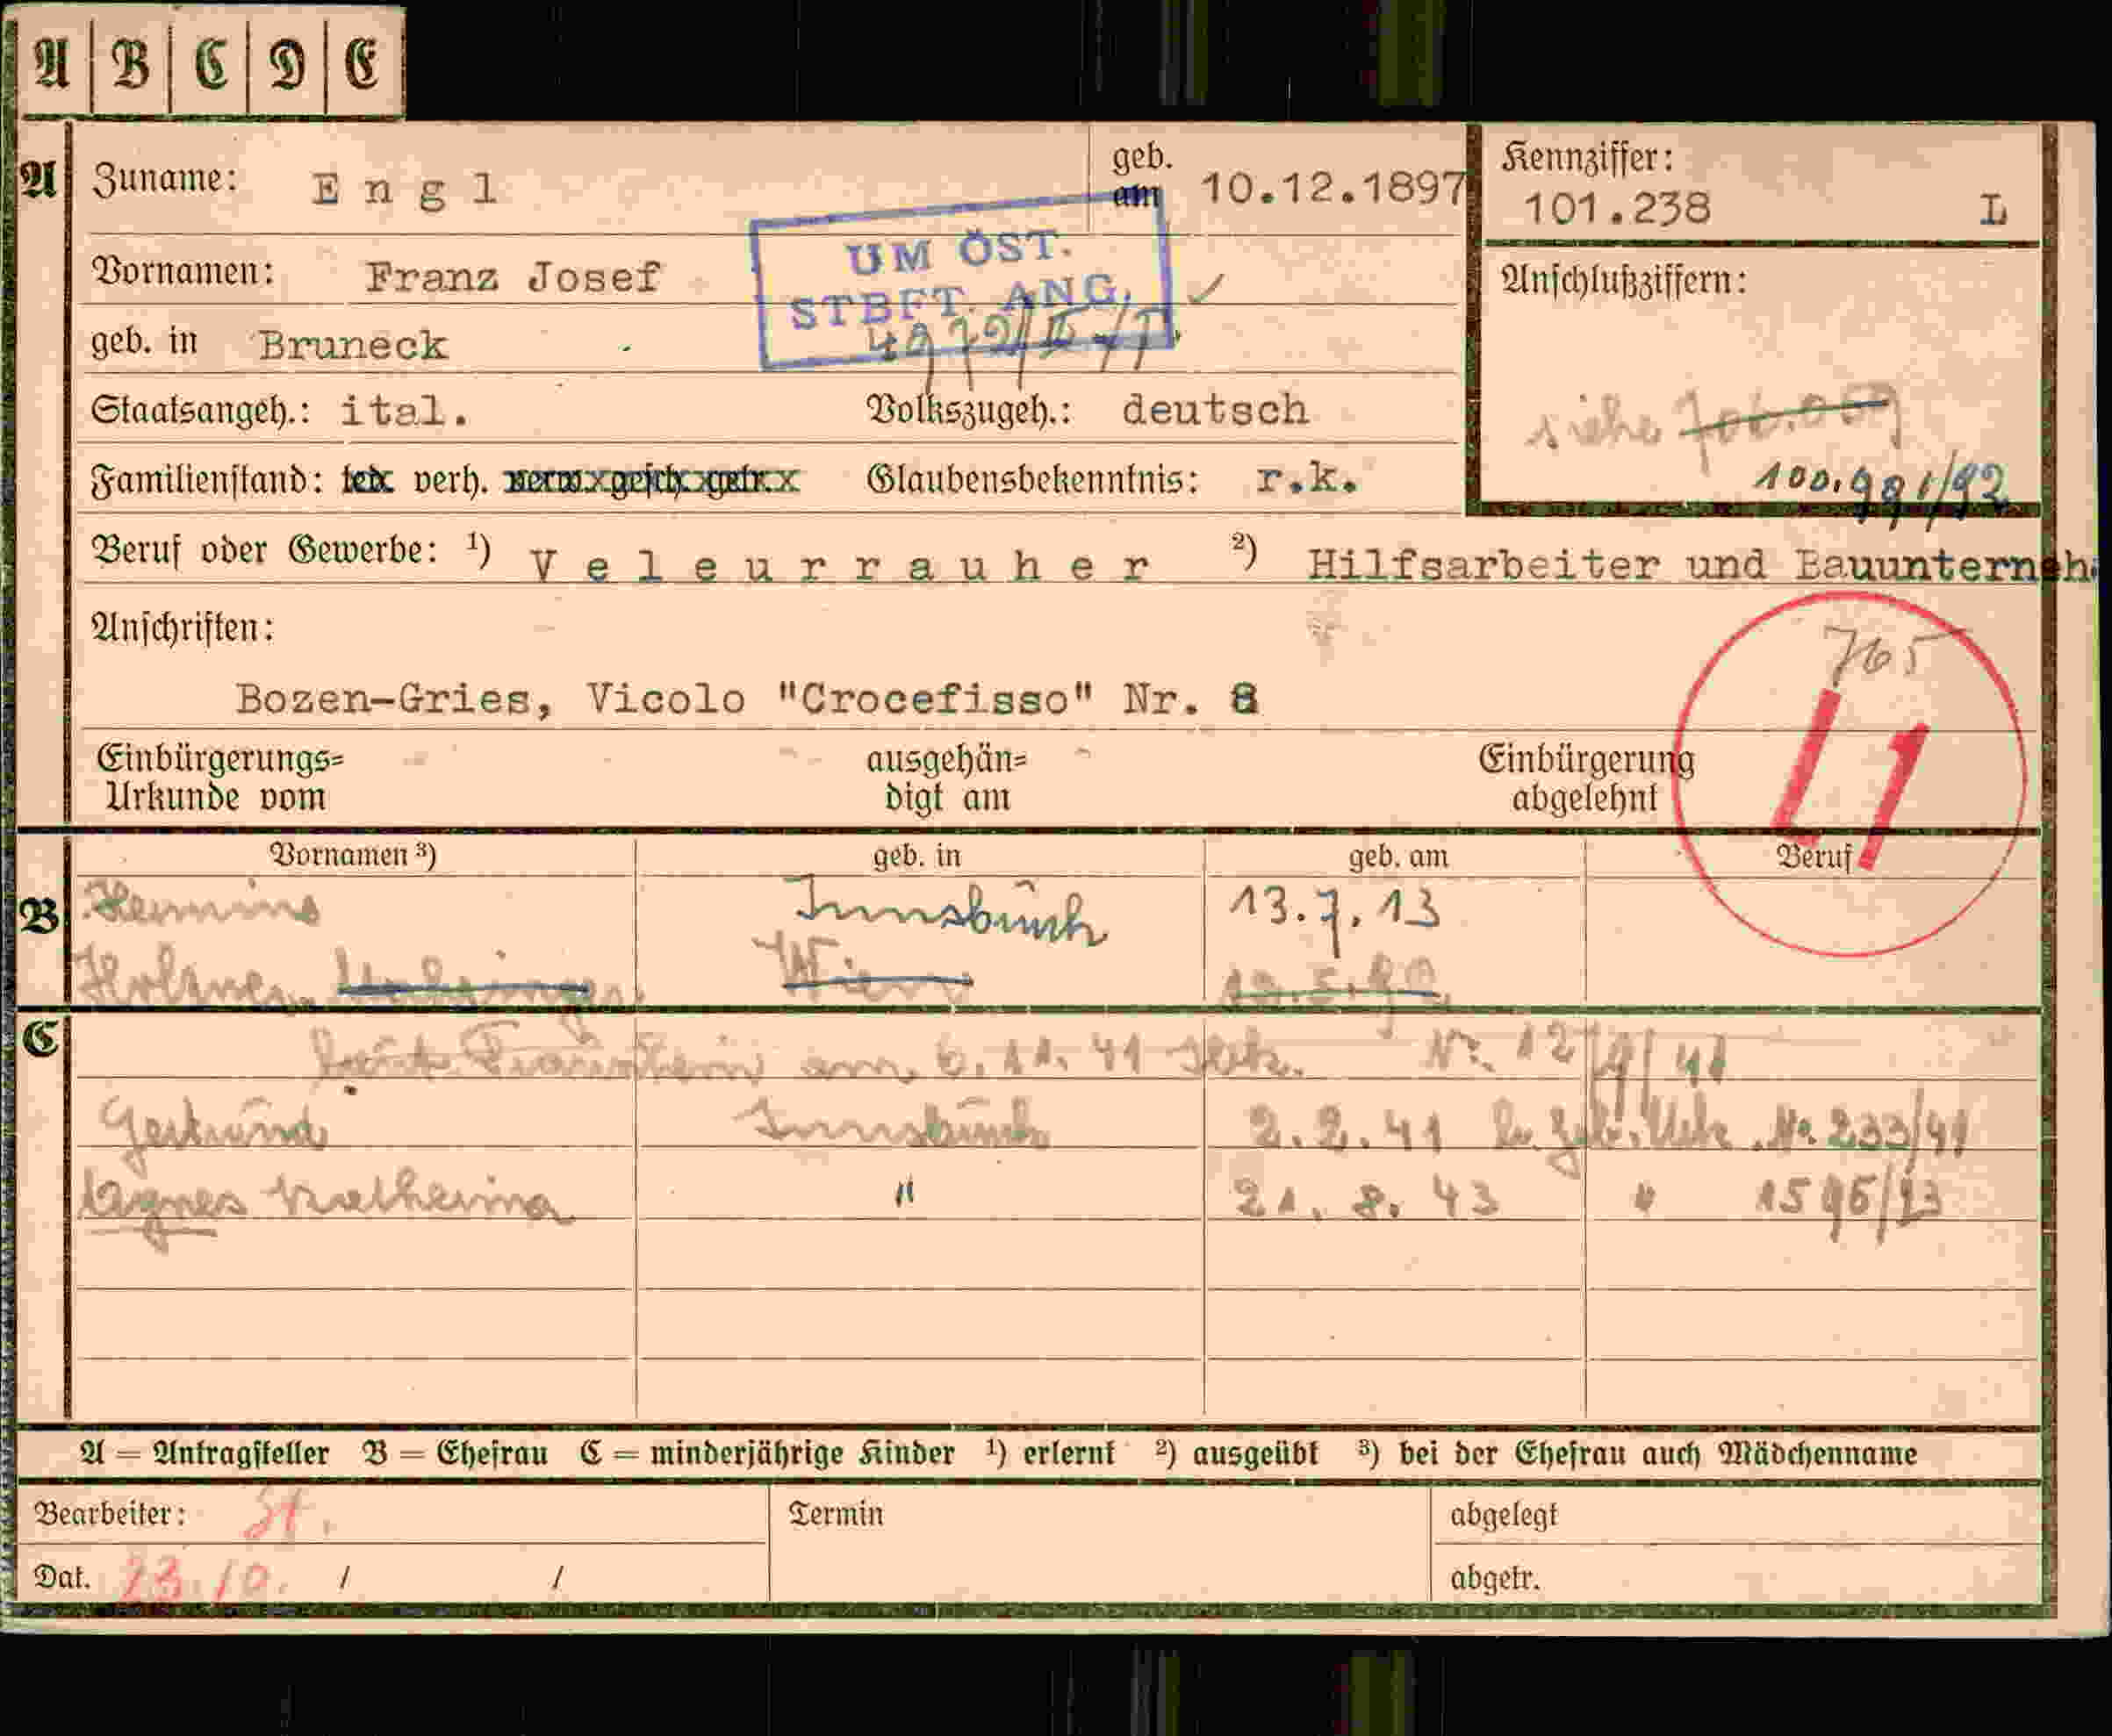 A B C D E
A Zuname: Engl geb. am 10.12.1897 Kennziffer: 101.238 L
UM ÖST. STBFT. ANG.
Vornamen: Franz Josef Anschlußziffern:
geb. in Bruneck
Staatsangeh.: ital. Volkszugeh.: deutsch siehe
Familienstand: led. verh. verw. gesch. getr. Glaubensbekenntnis: r.k. 100.981/92
Beruf oder Gewerbe: ¹) Veleurrauher ²) Hilfsarbeiter und Bauunterneh
Anschriften: 765
Bozen-Gries, Vicolo "Crocefisso" Nr. 8
L1
Einbürgerungs= Urkunde vom ausgehän= digt am Einbürgerung abgelehnt
Vornamen ³) geb. in geb. am Beruf
B Innsbruck 13.7.13
Wien
C am 6.11.41
Gertraud Innsbruck 2.2.41 Nr. 233/41
Agnes Katharina " 21.8.43 "
A = Antragsteller B = Ehefrau C = minderjährige Kinder ¹) erlernt ²) ausgeübt ³) bei der Ehefrau auch Mädchenname
Bearbeiter: Termin abgelegt
Dat. 23.10. / / abgetr.